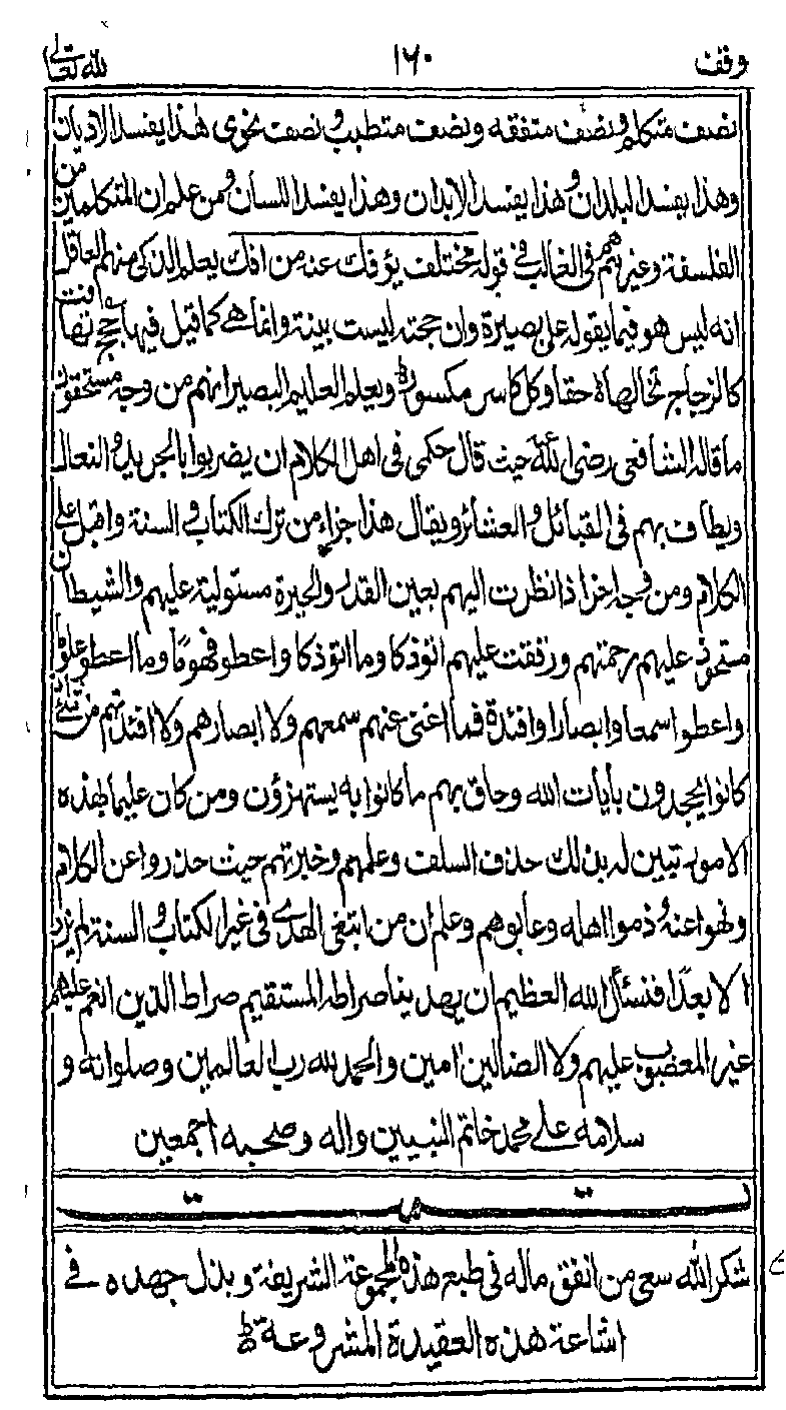 وقف ١٦٠ لله تعالى
نصف متكلم ونصف متفقه ونصف متطبب ونصف نحوى هذا يفسد الاديان
وهذا يفسد البلدان وهذا يفسد الابدان وهذا يفسد اللسان ومن علم ان المتكلمين من
الفلسفة وغيرهم فى الغالب فى قوله مختلف يؤفك عنه من افك يعلم الذكى منهم العاقل
انه ليس هو فيما يقوله على بصيرة وان حجته ليست ببينة وانما هے كما قيل فيها حجج تهافت
كالزجاج تخالها حقا وكل كاسر مكسور ويعلم العليم البصير انهم من وجه مستحقون
ما قاله الشافعى رضى الله عنه حيث قال حكمى فى اهل الكلام ان يضربوا بالجريد والنعال
ويطاف بهم فى القبائل والعشائر ويقال هذا جزاء من ترك الكتاب والسنة واقبل على
الكلام ومن وجه اخر اذا نظرت اليهم بعين القدر والحيرة مستولية عليهم والشيطان
مستحوذ عليهم رحمتهم ورفقت عليهم اتوا ذكا وما اتوا ذكا واعطوا فهوما وما اعطوا علوما
واعطوا سمعا وابصارا وافئدة فما اغنى عنهم سمعهم ولا ابصارهم ولا افئدتهم من شئ
كانوا يجحدون بايات الله وحاق بهم ما كانوا به يستهزؤن ومن كان عليما بهذه
الامور تبين له بذلك حذف السلف وعلمهم وخبرتهم حيث حذروا عن الكلام
ونهوا عنه وذموا اهله وعابوهم وعلم ان من ابتغى الهدے فى غير الكتاب والسنة لم يزدد
الا بعدا فنسئال الله العظيم ان يهدينا صراطه المستقيم صراط الذين انعم عليهم
غير المغضوب عليهم ولا الضالين امين والحمد لله رب العالمين وصلواته و
سلامه على محمد خاتم النبيين واله وصحبه اجمعين
تمت
شكر الله سعى من انفق ماله فى طبع هذه المجموعة الشريفة وبذل جهده فے
اشاعة هذه العقيدة المشروعة